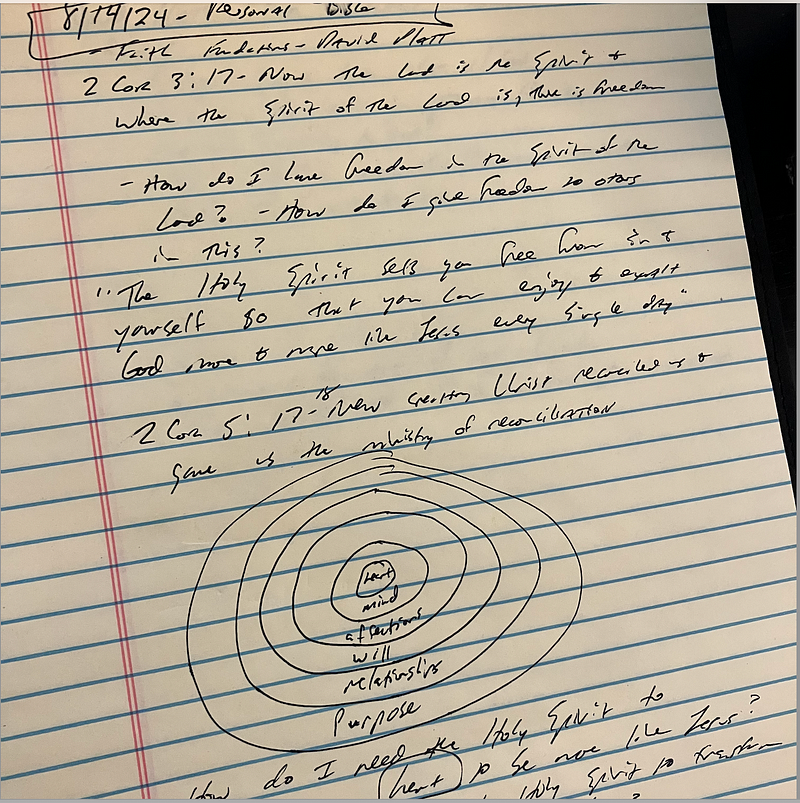 8/14/24 - Personal Bible
- Faith Fundations - David Platt
2 Cor 3:17 - Now the Lord is the Spirit &
where the Spirit of the Lord is, there is freedom
- How do I have freedom in the Spirit of the
Lord? - How do I give freedom to others
in this?
"The Holy Spirit sets you free from sin &
yourself so that you can enjoy & exalt
God more & more like Jesus every single day"
2 Cor 5:17-18 New creation, Christ reconciled us &
gave us the ministry of reconciliation
heart
mind
affections
will
relationships
Purpose
How do I need the Holy Spirit to
heart to be more like Jesus?
Holy Spirit to transform